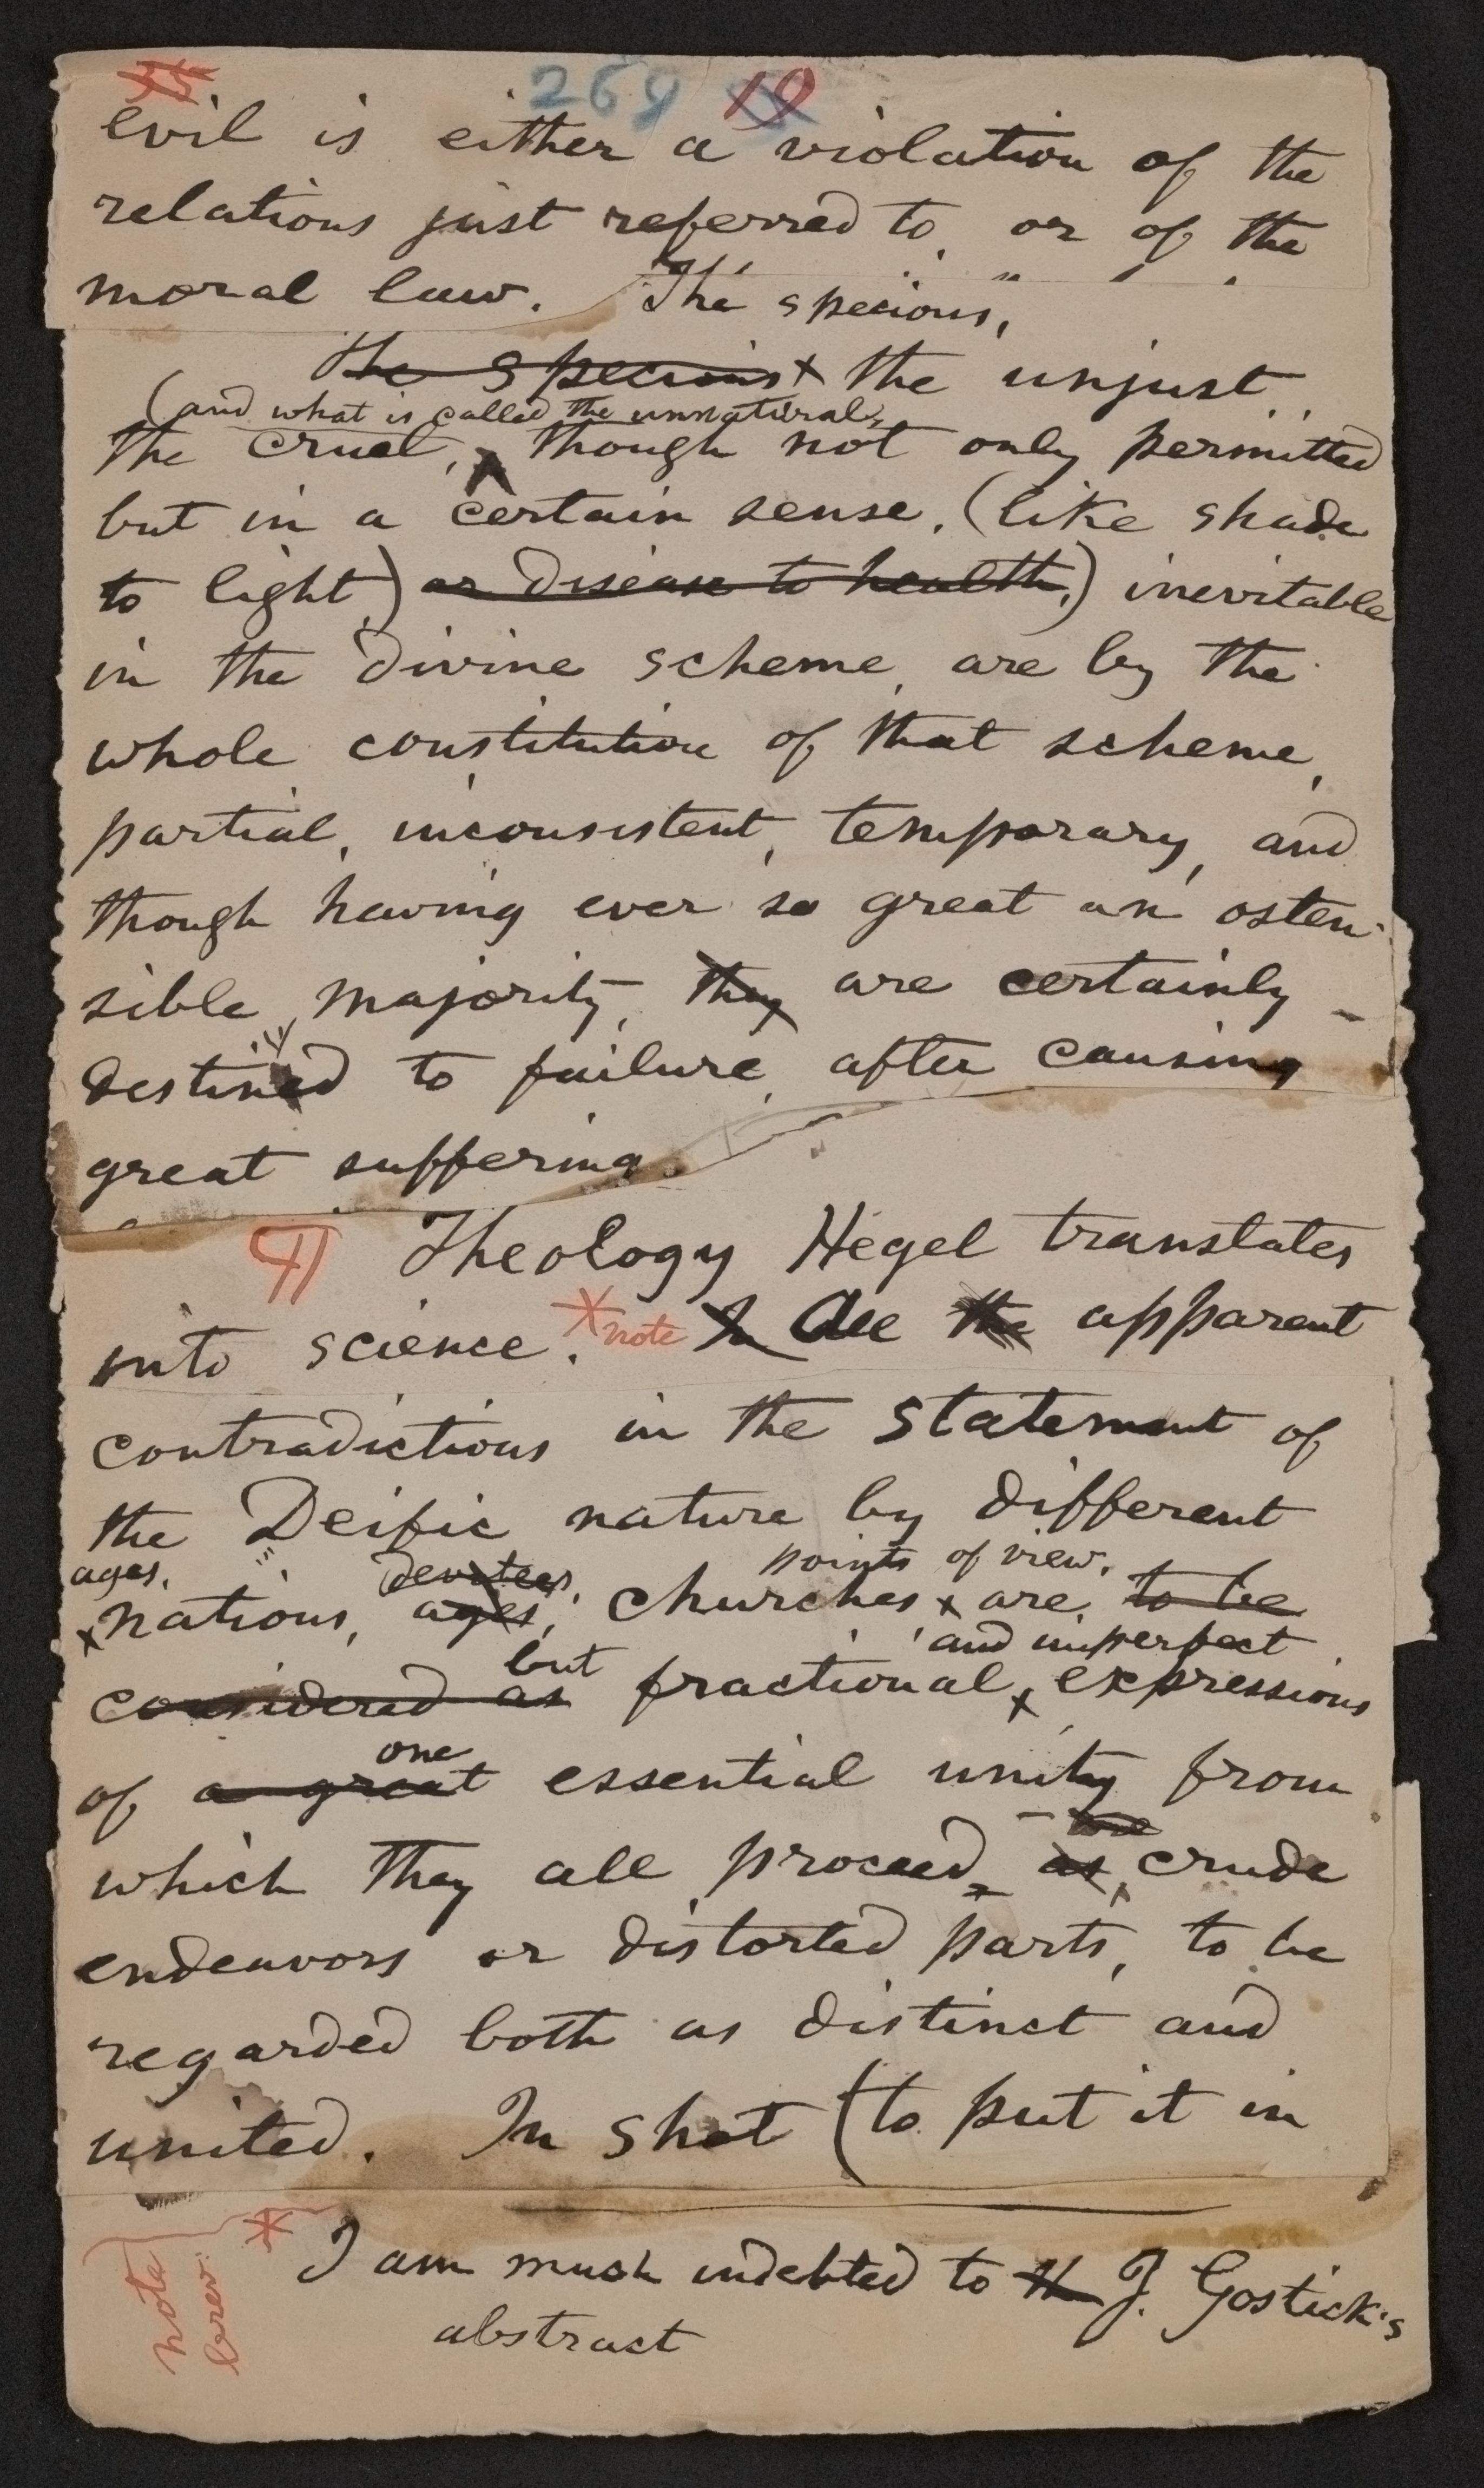 35 269 19
evil is either a violation of the
relations just referred to, or of the
moral law. The specious,
The specious x the unjust,
(and what is called the unnatural,
the cruel, ^ though not only permitted
but in a certain sense, (like shade
to light) or disease to health,) inevitable
in the divine scheme, are by the
whole constitution of that scheme,
partial, inconsistent, temporary, and
though having ever so great an osten-
sible majority, they are certainly
destined to failure, after causing
great suffering.
¶ Theology Hegel translates
into science. * note In All the apparent
contradictions in the statement of
the Deific nature by different
ages, devotees, points of view,
x nations, ages, churches x are to be
but and imperfect
considered as fractional x expressions
one
of a great essential unity from
which they all proceed, as crude
endeavors or distorted parts, to be
regarded both as distinct and
united. In shot (to put it in
* I am much indebted to J. Gostick's
abstract
note
brev: